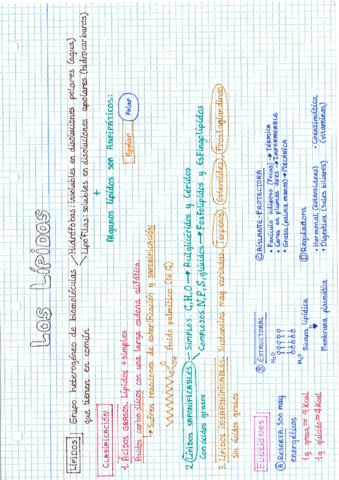 LOS LÍPIDOS
LÍPIDOS Grupo heterogéneo de Biomoléculas
que tienen en común
Hidrófobas: insolubles en disoluciones polares (agua)
Lipófilas: solubles en disoluciones apolares (hidrocarburos)
CLASIFICACIÓN
Algunos lípidos son ANFIPÁTICOS:
Apolar Polar
1. ÁCIDOS GRASOS: Lípidos + simples
Ácidos carboxílicos con una larga cadena alifática.
Sufren reacciones de esterificación y saponificación
Ácido palmítico (16 C)
2. LÍPIDOS SAPONIFICABLES
Con ácidos grasos
Simples: C, H, O → Acilglicéridos y Céridos
Complejos: N, P, S, glúcidos → Fosfolípidos y Esfingolípidos
3. LÍPIDOS INSAPONIFICABLES: Sustancias muy variadas (Terpenos, Esteroides, Prostaglandinas)
sin ácidos grasos
FUNCIONES
Ⓐ RESERVA: Son muy
energéticos
1g grasa = 9 Kcal
1g glúcido = 4 Kcal
Ⓑ ESTRUCTURAL
H₂O
H₂O
Bicapa lipídica
Membrana plasmática
Ⓒ AISLANTE-PROTECTORA
• Panículo adiposo (Focas) → TÉRMICA
• Ceras en plumas aves → IMPERMEABLE
• Grasa (palma manos) → MECÁNICA
Ⓓ Reguladora
• Hormonal (esteroides)
• Digestiva (sales biliares)
• Coenzimática
(vitaminas)